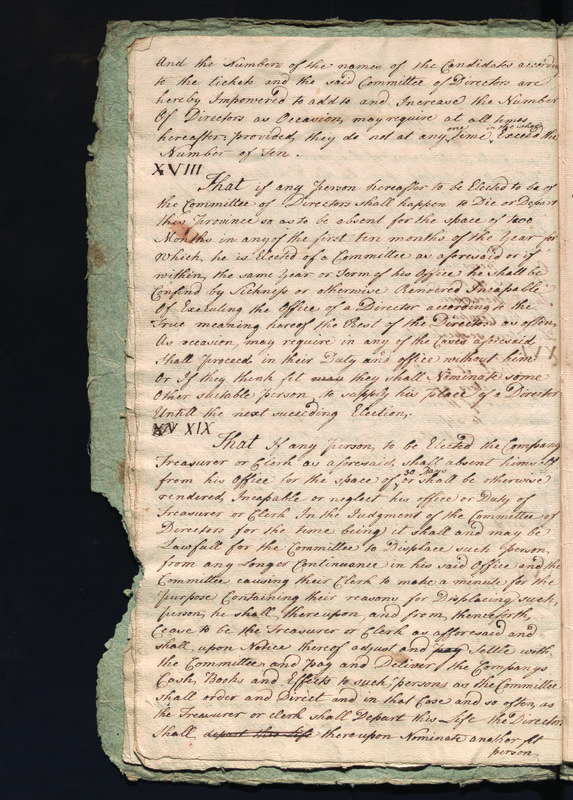 And the Number of the names of the Candidates accordg
to the tickets and the said Committee of Directors are
hereby Impowered to add to and Increase the Number
Of Directors as Occasion may require at all times
hereafter provided, they do not at any one Time in the whole Exceed the
Number of Ten.
XVIII
That if any Person hereafter to be Elected to be of
the Committee of Directors shall happen to Die or Depart
this Province so as to be absent for the space of two
Months in any of the first ten months of the Year for
Which he is Elected of a Committee as aforesaid or if
within the same Year or Term of his Office he shall be
Confind by Sickness or otherwise Rendered Incapable
Of Executing the Office of a Director according to the
True meaning hereof the Rest of the Directors as often
As occasion may require in any of the Cases aforesaid
Shall proceed in their Duty and office without him
Or If they think fet may they shall Nominate some
Other suitable person, to supply his place of a Director
Untill the next suceeding Election,
XV XIX
That If any Person, to be Elected the Company
Treasurer or Clerk as aforesaid, shall absent himself
from his Office for the space of 30 Days or shall be otherwise
rendered, Incapable or neglect his office or Duty of
Treasurer or Clerk In the Judgment of the Committee of
Directors for the time being it shall and may be
Lawfull for the Committee to Displace such Person
from any Longer Continuance in his said Office and the
Committee causing their Clerk to make a minute for the
Purpose Containing their reasons for Displacing such,
person, he shall, thereupon, and from, thenceforth,
Cease to be the Treasurer or Clerk as afforesaid and
shall, upon Notice thereof adjust and pay Settle with
the Committee and pay and Deliver the Companys
Cash, Books and Effects to such persons as the Committee
shall order and Direct and in that Case and so often as
the Treasurer or clerk shall Depart this Life the Director
Shall depart this life thereupon Nominate another fit
person